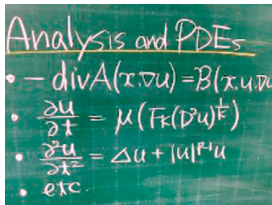 Analysis and PDEs
• -divA(x,∇u)=B(x,u,Du
• ∂u/∂t = μ(Fₖ(D²u)^{1/k})
• ∂²u/∂t² = Δu+|u|^{p-1}u
• etc.